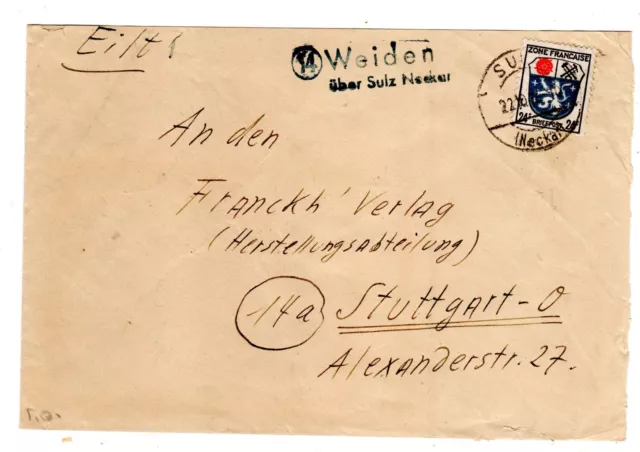 Eilt!
14 Weiden
über Sulz Neckar
SU
22.10
(Neckar)
ZONE FRANÇAISE
24 BRIEFPOST 24
An den
Franckh' Verlag
(Herstellungsabteilung)
14a Stuttgart-O
Alexanderstr. 27.